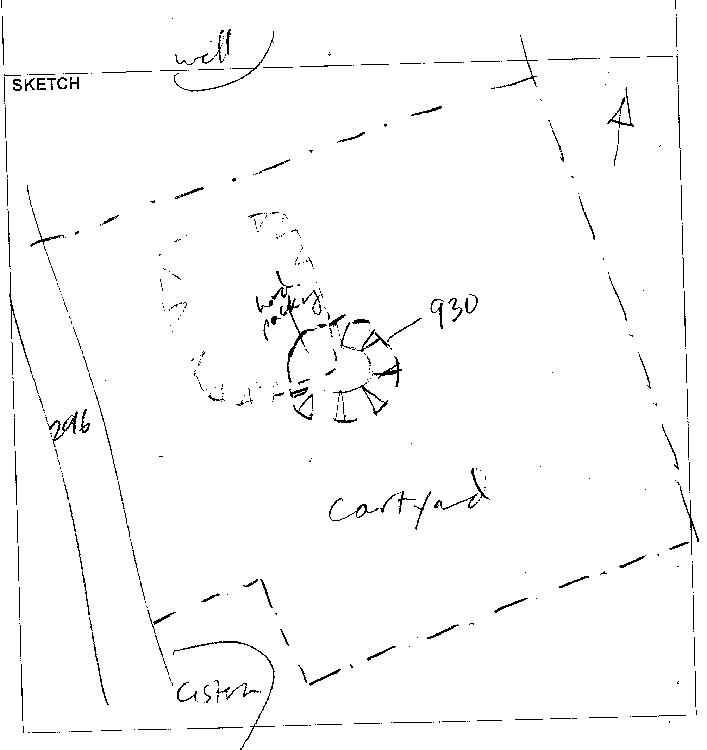 well
SKETCH
hard
packing
930
296
Cartyard
Cistern